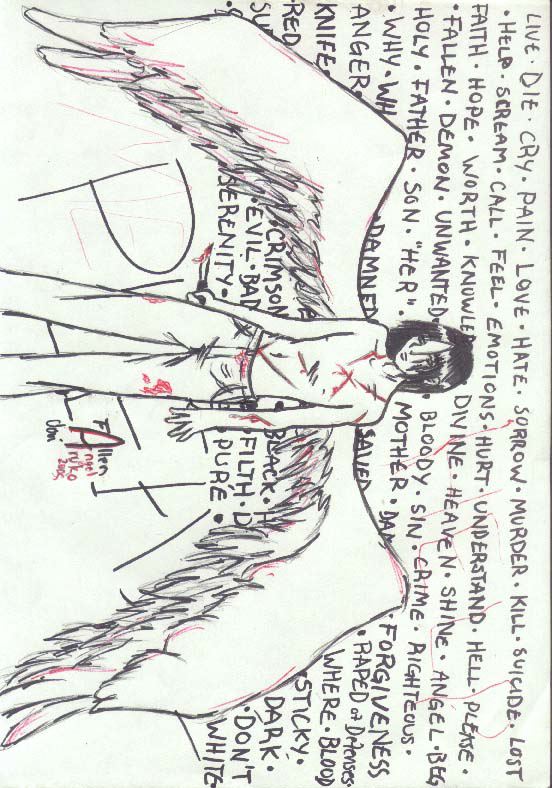 LIVE · DIE · CRY · PAIN · LOVE · HATE · SORROW · MURDER · KILL · SUICIDE · LOST
· HELP · SCREAM · CALL · FEEL · EMOTIONS · HURT · UNDERSTAND · HELL · PLEASE ·
FAITH · HOPE · WORTH · KNOWLED DIVINE · HEAVEN · SHINE · ANGEL · BEG
· FALLEN · DEMON · UNWANTED · BLOODY · SIN · CRIME · RIGHTEOUS ·
HOLY · FATHER · SON · "HER" · MOTHER · DAM · FORGIVENESS
· WHY · WH DAMNED SAVED · RAPED of Defenses
ANGER WHERE · BLOOD
KNIFE · CRIMSON BLACK · H STICKY ·
RED · EVIL · BAD FILTH · D DARK ·
SU SERENITY · PURE · · DON'T
WHITE
Fallen
Angel
2005